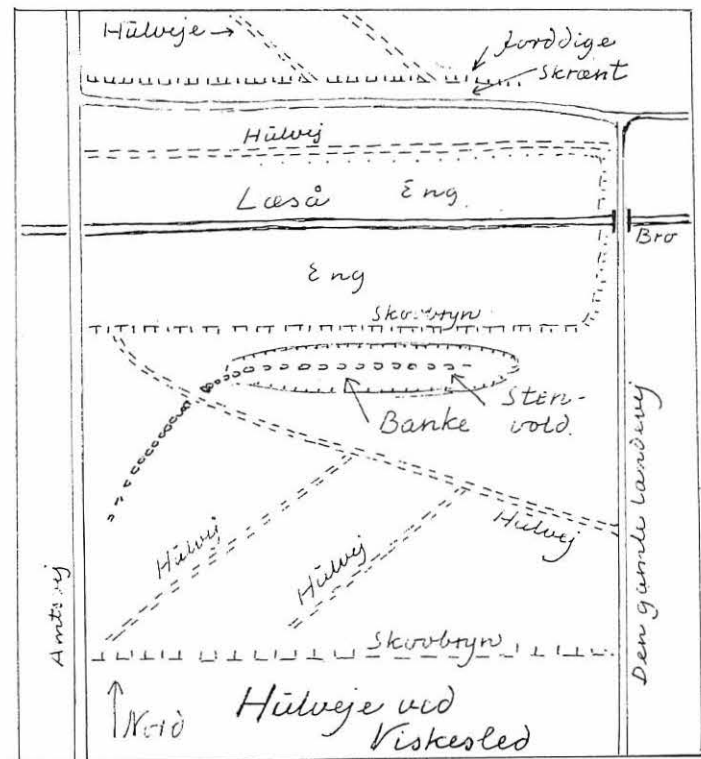 Hulveje
Jorddige
Skrænt
Hulvej
Læså Eng
Bro
Eng
Skovbryn
Sten-
vold.
Banke
Hulvej
Hulvej
Hulvej
Amtsvej
Den gamle landevej
Skovbryn
Nord
Hulveje ved
Viskesled